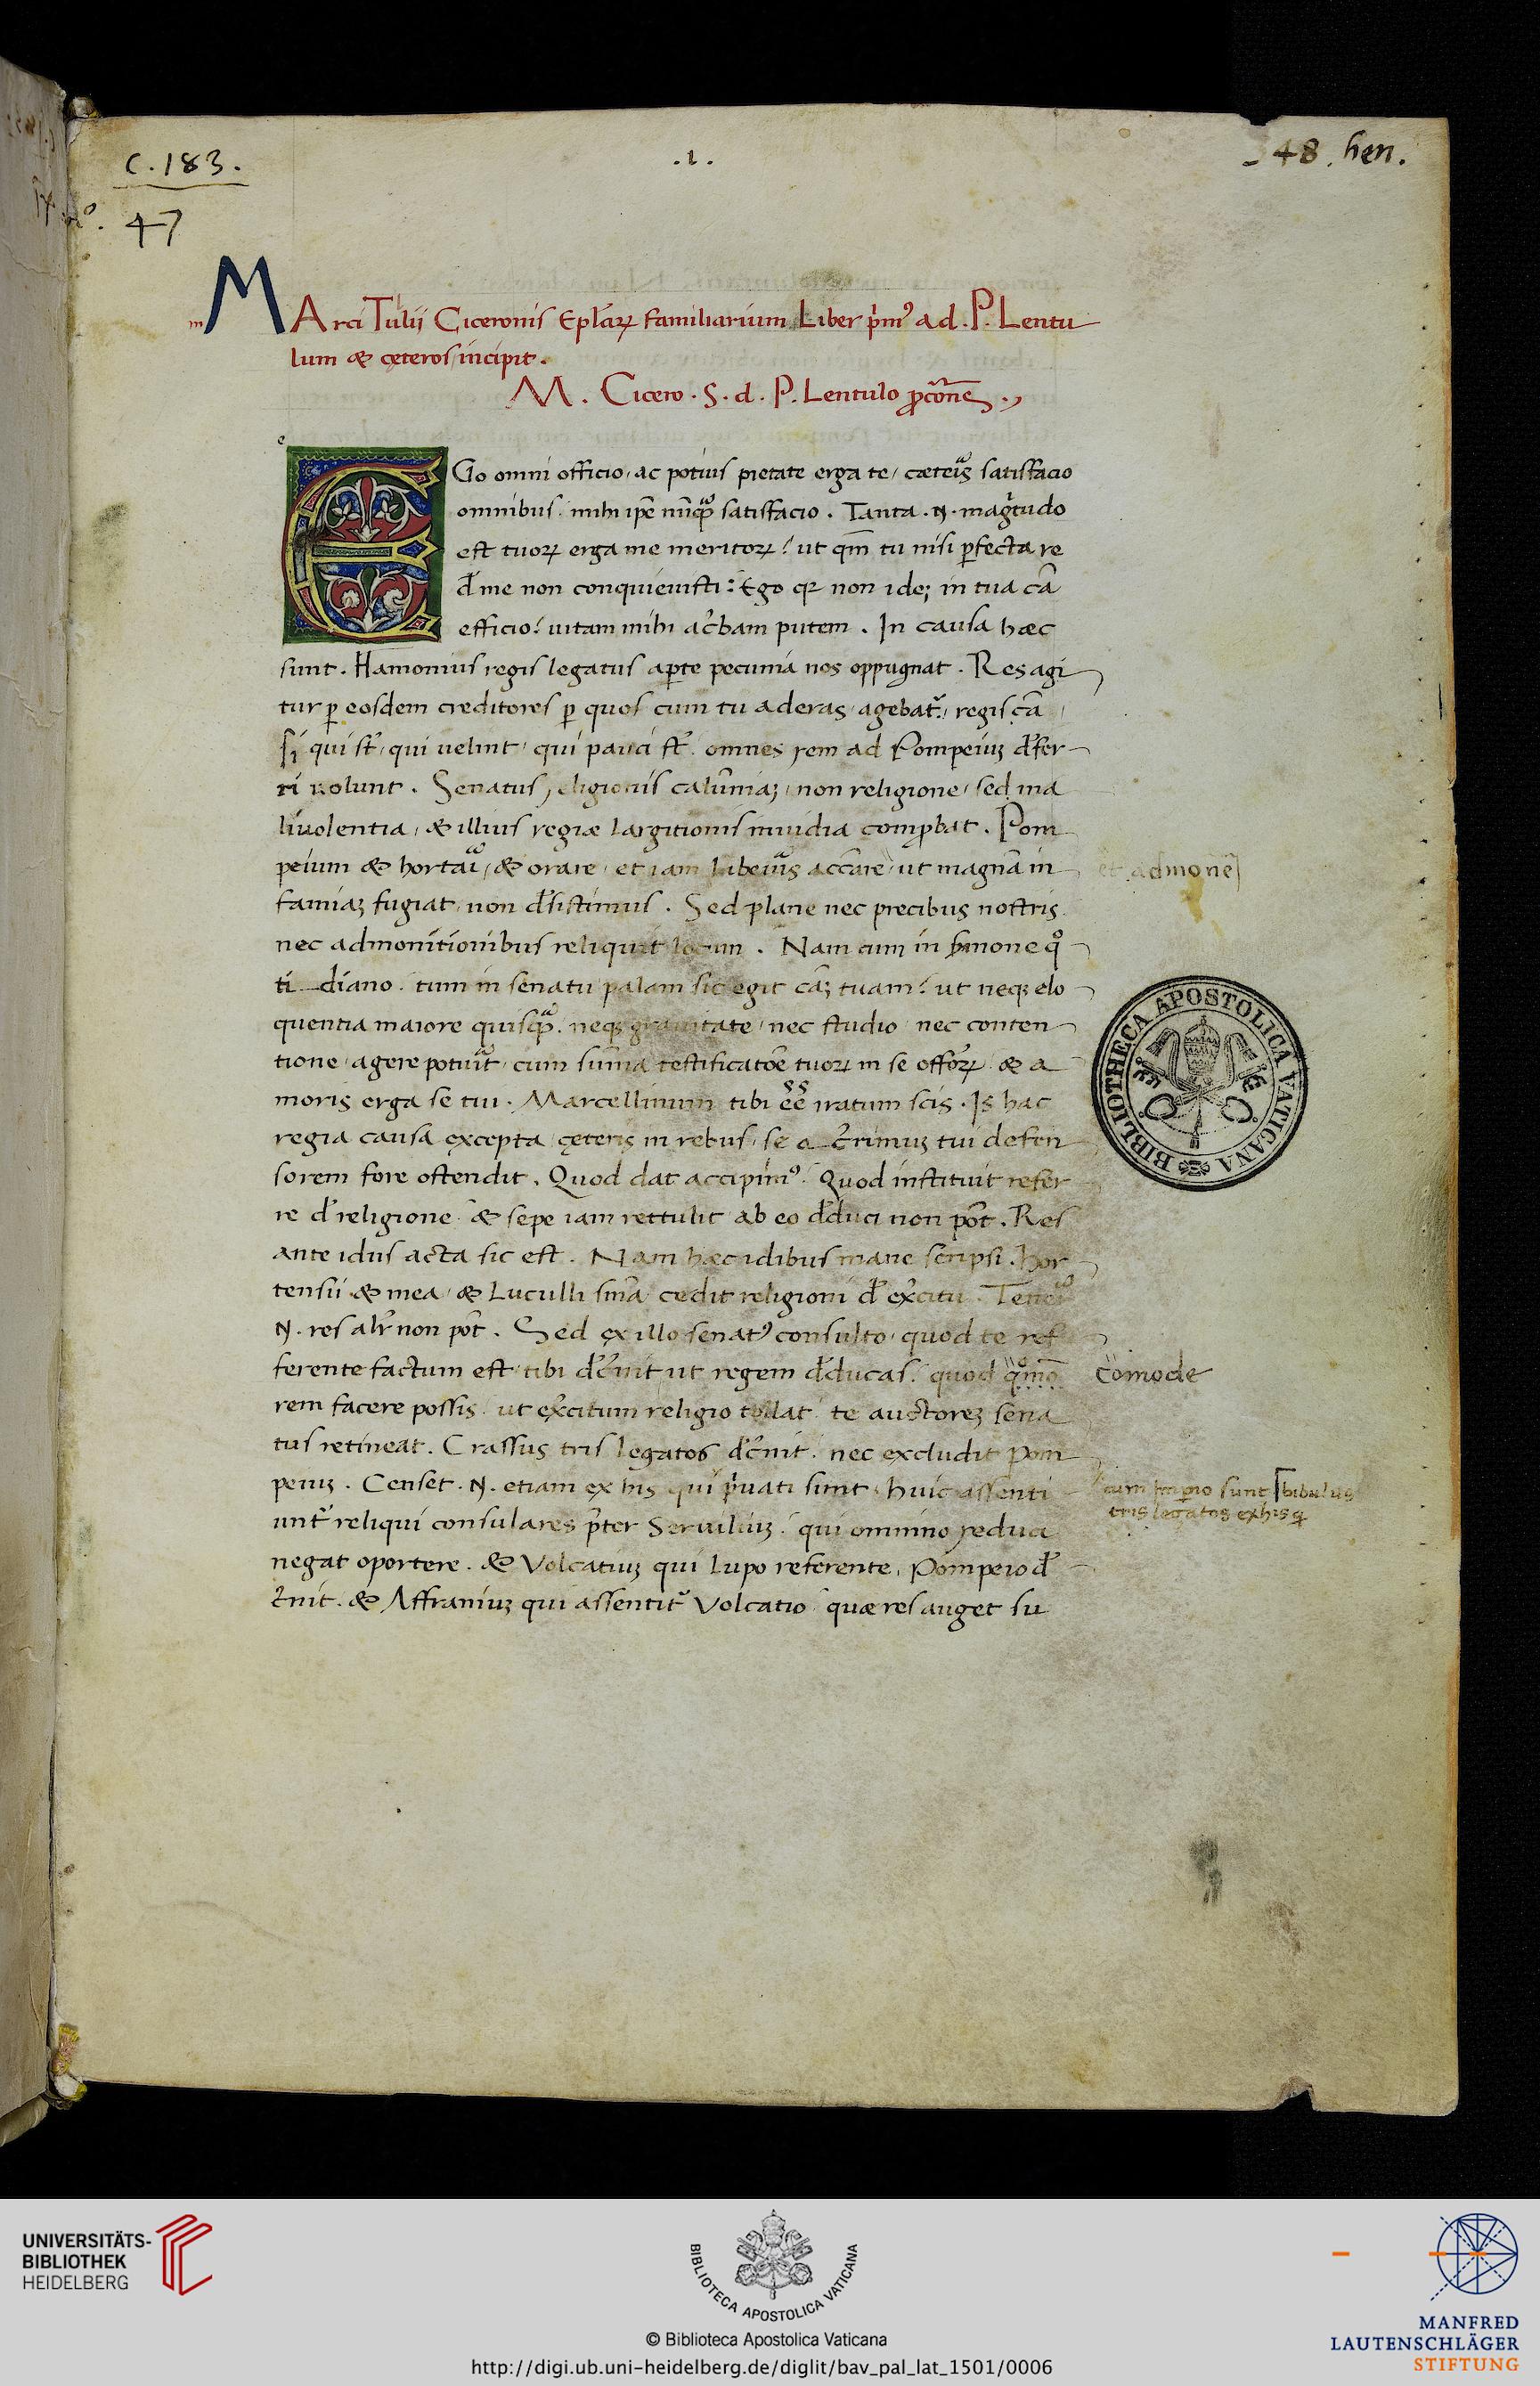 C. 183.
.1.
48. hen.
47
m
MArci Tulij Ciceronis Epl̃aꝝ Familiarium Liber p̃mꝰ ad. P. Lentu
lum & cęteros incipit.
M. Cicero. S. d. P. Lentulo ꝓcõne.,
e
EGo omni officio, ac potius pietate erga te, cæteris satisfacio
omnibus. mihi ip̃e nũqꝫ satisfacio. Tanta. N. magr̃tudo
est tuoꝝ erga me meritoꝝ: ut qm̃ tu nisi ꝑfecta re
d̃ me non conquievisti: Ego qꝛ non idꝫ in tua cã
efficio: vitam mihi ac̃bam putem. In causa hæc
sunt. Hamonius regis legatus aꝑte pecunia nos oppugnat. Res agi
tur ꝑ eosdem creditores ꝑ quos cum tu aderas, agebat̃. regis cã
si qui st̃, qui velint, qui pauci st̃. omnes rem ad Pompeiuꝫ d̃fer
ri volunt. Senatus religionis calũniaꝫ, non religione, sed ma
livolentia, & illius regiæ largitionis invidia comꝓbat. Pom
peium & hortari, & orare, et iam liberius accũsare, ut magnã in
et admonẽ
famiaꝫ fugiat, non d̃sistimus. Sed plane nec precibus nostris
nec admonitionibus reliquit locum. Nam cum in s̃mone qͦ
ti diano. tum in senatu palam sic egit cãꝫ tuam: ut neqꝫ elo
quentia maiore quisqꝫ. neqꝫ gravitate, nec studio, nec conten
tione, agere potuit, cum sum̃a testificatõe tuoꝝ in se offõꝝ. & a
moris erga se tui. Marcellinum tibi ẽẽ iratum scis. Is hac
regia causa excepta, cęteris in rebus, se a c̃rimuꝫ tui defen
sorem fore ostendit. Quod dat accipimꝰ. Quod instituit refer
re d̃ religione, & sepe iam rettulit, ab eo d̃duci non põt. Res
ante idus acta sic est. Nam hæc idibus mane scripsi. Hor
tensii & mea, & Luculli sñia cedit religioni d̃ ex̃citu. Teneri
N. res alr̃ non põt. Sed ex illo senatꝰ consulto, quod te ref
ferente factum est, tibi d̃c̃nit ut regem d̃ducas. quod q̃mõ
cõmode
rem facere possis. ut ex̃citum religio tollat. te auctoreꝫ sena
tus retineat. Crassus tris legatos d̃c̃nit. nec excludit Pom
peiuꝫ. Censet. N. etiam ex his qui p̃vati sunt, huic assenti
cum imꝑio sunt bibulus
tris legatos ex his q̃
unt̃ reliqui consulares p̃ter Serviliuꝫ. qui omnino reduci
negat oportere. & Volcatiuꝫ qui Lupo referente, Pompeio d̃
c̃nit. & Affraniuꝫ qui assentit̃ Volcatio. quæ res auget su
BIBLIOTHECA APOSTOLICA VATICANA
UNIVERSITÄTS-
BIBLIOTHEK
HEIDELBERG
BIBLIOTECA APOSTOLICA VATICANA
© Biblioteca Apostolica Vaticana
http://digi.ub.uni-heidelberg.de/diglit/bav_pal_lat_1501/0006
MANFRED
LAUTENSCHLÄGER
STIFTUNG